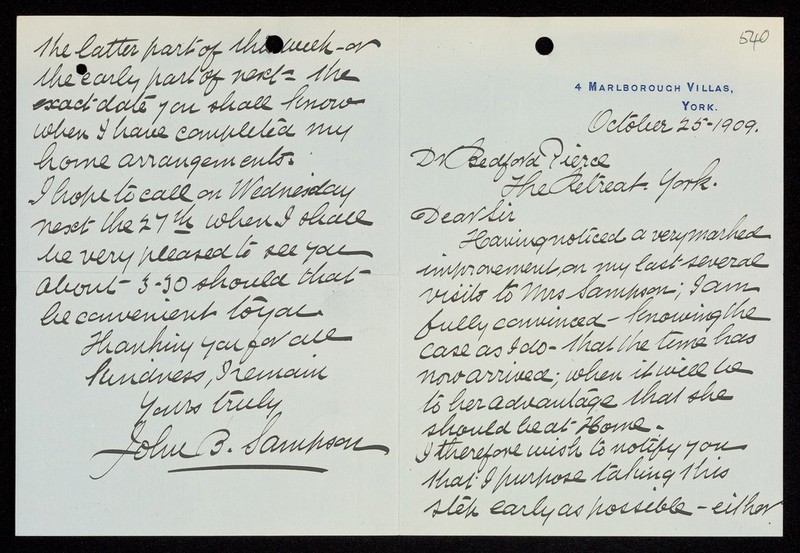 540
4 MARLBOROUGH VILLAS,
YORK.
October 25-1909.
Dr Bedford Pierce
The Retreat. York.
Dear Sir
Having noticed a very marked
improvement on my last several
visits to Mrs Sampson; I am
fully convinced - knowing the
case as I do - that the time has
now arrived; when it will be
to her advantage that she
should be at Home.
I therefore wish to notify you
that I purpose taking this
step early as possible - either
the latter part of this week - or
the early part of next - the
exact date you shall know
when I have completed my
home arrangements.
I hope to call on Wednesday
next the 27th when I shall
be very pleased to see you
about - 3-30 should that
be convenient to you.
Thanking you for all
kindness, I remain
Yours truly
John B. Sampson